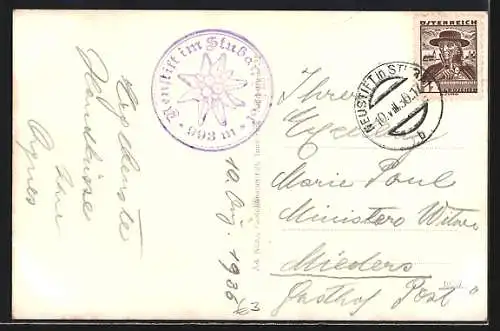 Neustift im Stubai
993 m
Ergebenste
Handküsse
Ihre
Agnes
10. Aug. 1936
ÖSTERREICH
NEUSTIFT in STUBAI
10.VIII.36.17
b
Ihrer
Marie Paul
Ministers Witwe
Mieders
Gasthof "Post"